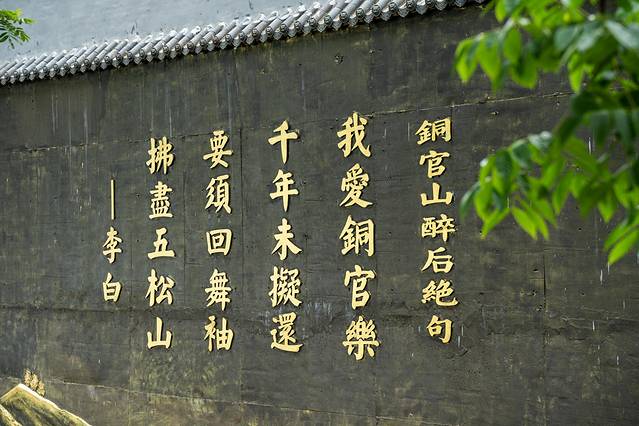 銅官山醉后絶句
我愛銅官樂
千年未擬還
要須回舞袖
拂盡五松山
——李白